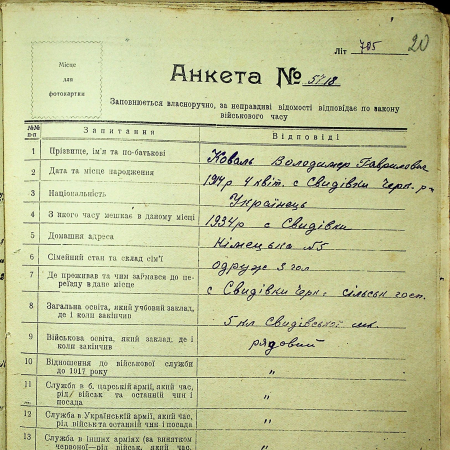 Літ 705
20
Місце
для
фотокартки
Анкета № 5718
Заповнюється власноручно, за неправдиві відомості відповідає по закону
військового часу
№№
п-п
Запитання
Відповіді
1 Прізвище, ім'я та по-батькові Коваль Володимир Гаврилович
2 Дата та місце народження 4 квіт. с Свидівки
3 Національність Українець
4 З якого часу мешкає в даному місці 1934р с Свидівки
5 Домашня адреса Німецька №5
6 Сімейний стан та склад сім'ї одруж 3 гол
7 Де проживав та чим займався до пе-
реїзду в дане місце с Свидівки Черк. сільськ госп.
8 Загальна освіта, який учбовий заклад,
де і коли закінчив 5 кл Свидівської шк.
9 Військова освіта, який заклад, де і
коли закінчив рядовий
10 Відношення до військової служби
до 1917 року "
11 Служба в б. царській армії, який час,
рід військ та останній чин і
посада "
12 Служба в Українській армії, який час,
рід військ та останній чин і посада "
13 Служба в інших арміях (за винятком
червоної—рід військ, який час, "